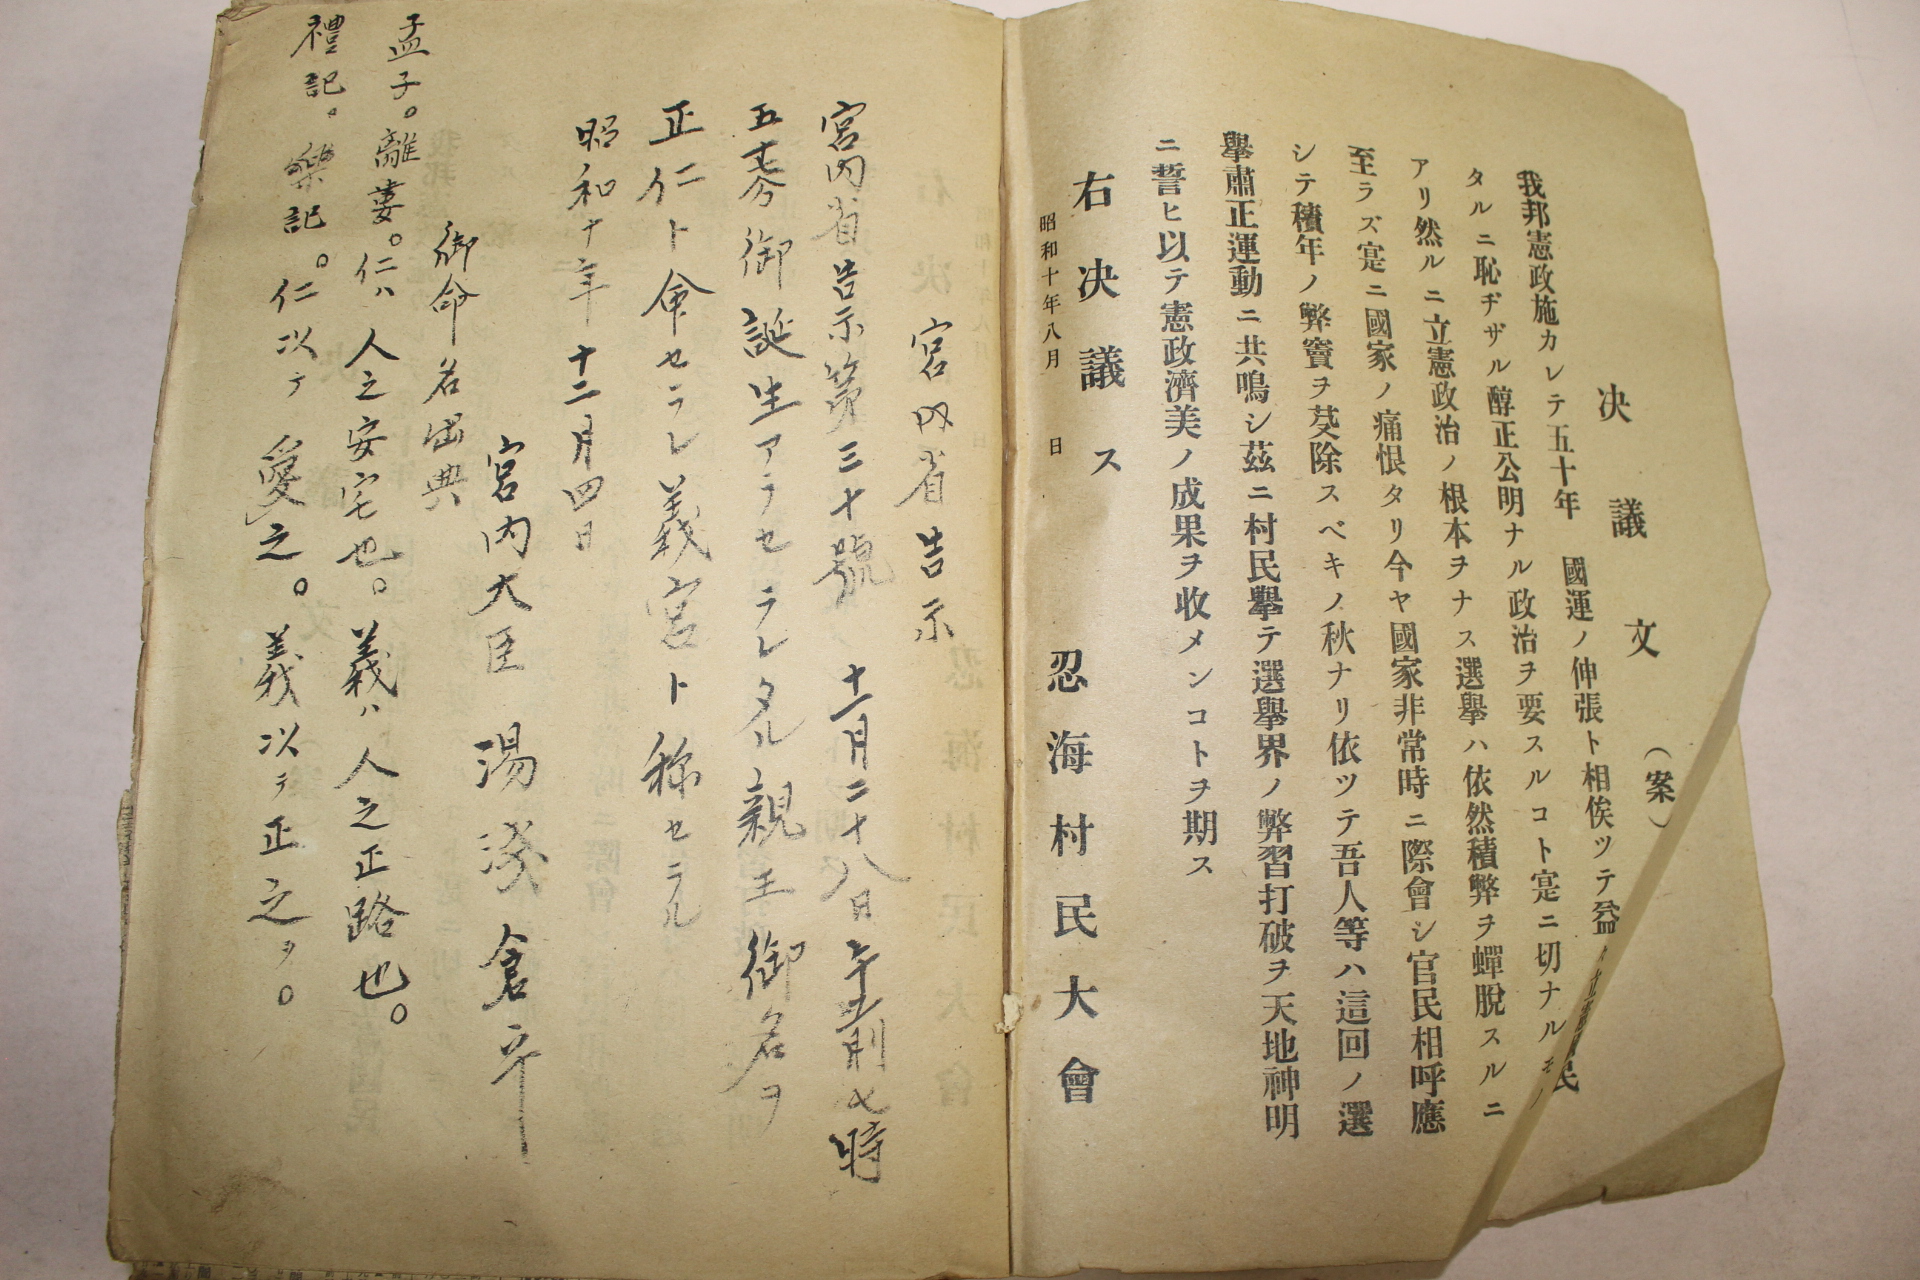 決議文（案）
我邦憲政施カレテ五十年　國運ノ伸張ト相俟ツテ益々立憲國民
タルニ恥ヂザル醇正公明ナル政治ヲ要スルコト寔ニ切ナルモノ
アリ然ルニ立憲政治ノ根本ヲナス選擧ハ依然積弊ヲ蟬脫スルニ
至ラズ寔ニ國家ノ痛恨タリ今ヤ國家非常時ニ際會シ官民相呼應
シテ積年ノ弊竇ヲ芟除スベキノ秋ナリ依ツテ吾人等ハ這回ノ選
擧肅正運動ニ共鳴シ茲ニ村民擧テ選擧界ノ弊習打破ヲ天地神明
ニ誓ヒ以テ憲政濟美ノ成果ヲ收メンコトヲ期ス
右決議ス
昭和十年八月　日
忍海村民大會
宮内省告示
宮内省告示第三十號　十一月二十八日午前七時
五十七分御誕生アラセラレタル親王御名ヲ
正仁ト命セラレ義宮ト称セラル
昭和十年十二月四日
宮内大臣　湯淺倉平
御命名出典
孟子。離婁。仁ハ人之安宅也。義ハ人之正路也。
禮記。樂記。仁以テ愛之。義以テ正之ヲ。